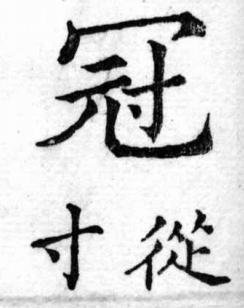 冠
從寸